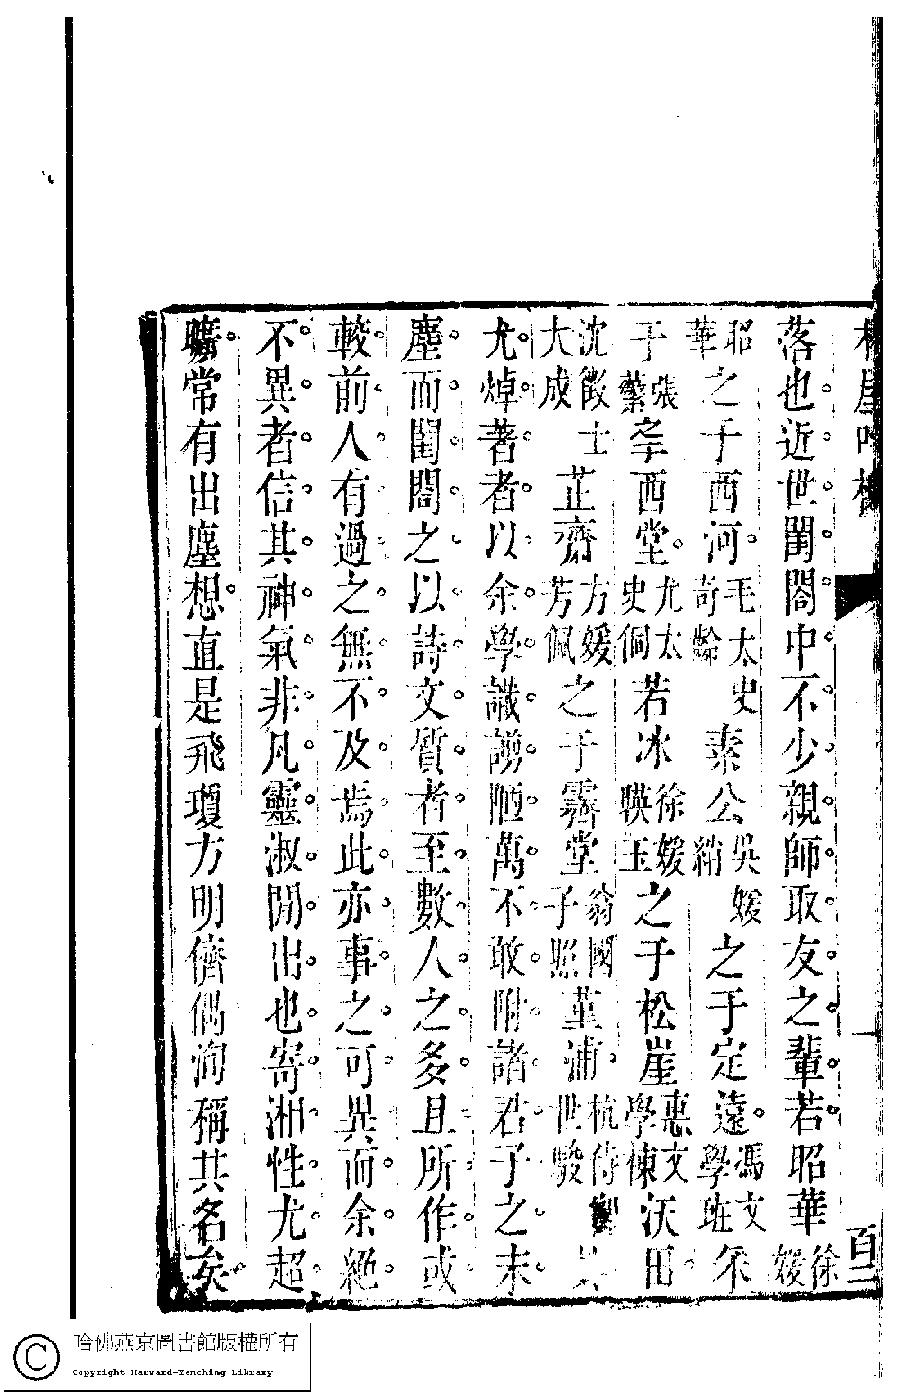 落也近世閨閤中不少親師取友之輩若昭華徐媛
昭華之于西河毛太史奇齡素公吳媛綃之于定遠馮文學班采
于張蘩之于西堂尤太史侗若冰徐媛暎玉之于松崖惠文學棟沃田
沈徵士大成芷齋方媛芳佩之于霽堂翁國子照堇浦杭侍御世駿其
尤焯著者以余學識謭陋萬不敢附諸君子之末
塵而閨閤之以詩文質者至數人之多且所作或
較前人有過之無不及焉此亦事之可異而余絕
不異者信其神氣非凡靈淑閒出也寄湘性尤超
曠常有出塵想直是飛瓊方明儕偶洵稱其名矣
哈佛燕京圖書館版權所有
Copyright Harvard-Yenching Library